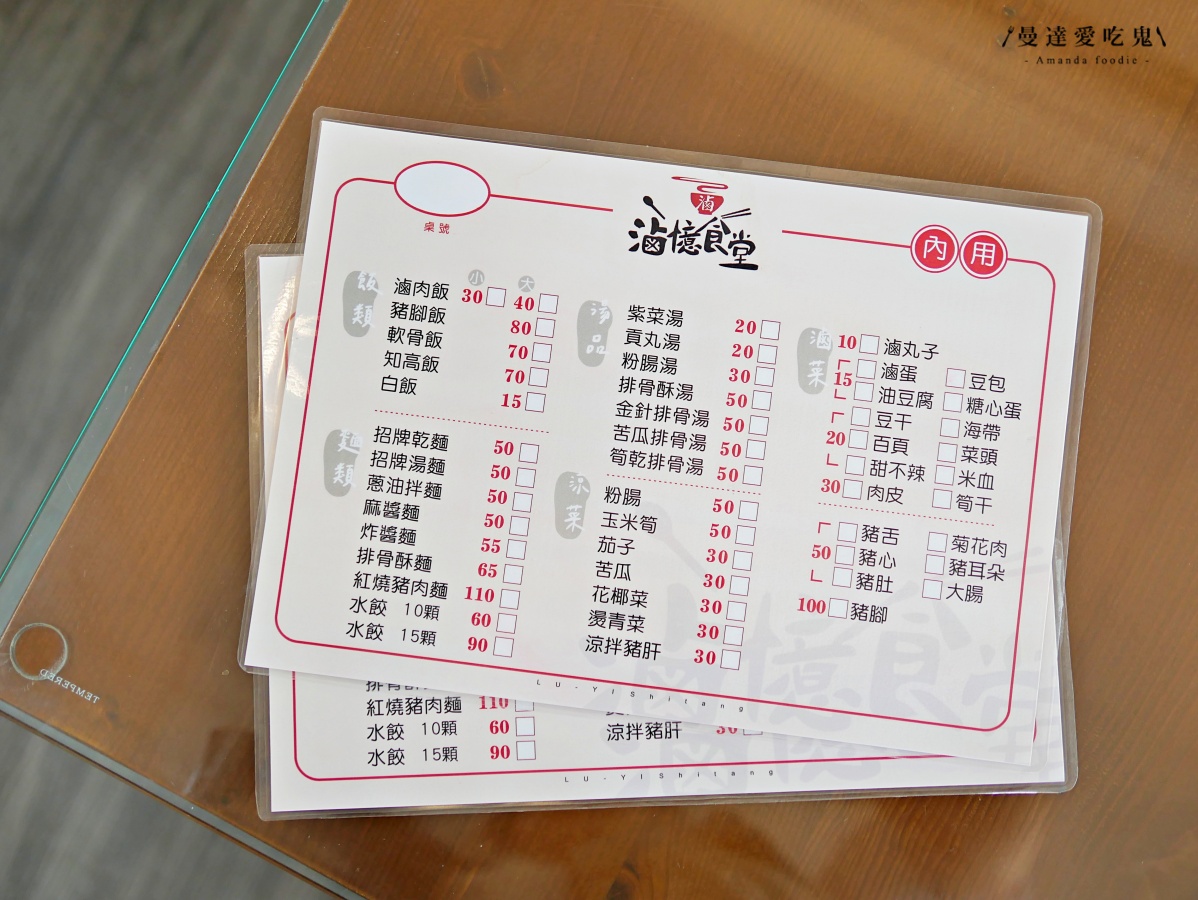 曼達愛吃鬼
- Amanda foodie -
桌號
滷
滷憶食堂
內用
飯類
小 大
滷肉飯 30 40
豬腳飯 80
軟骨飯 70
知高飯 70
白飯 15
麵類
招牌乾麵 50
招牌湯麵 50
蔥油拌麵 50
麻醬麵 50
炸醬麵 55
排骨酥麵 65
紅燒豬肉麵 110
水餃 10顆 60
水餃 15顆 90
湯品
紫菜湯 20
貢丸湯 20
粉腸湯 30
排骨酥湯 50
金針排骨湯 50
苦瓜排骨湯 50
筍乾排骨湯 50
涼菜
粉腸 50
玉米筍 50
茄子 30
苦瓜 30
花椰菜 30
燙青菜 30
涼拌豬肝 30
滷菜
10 滷丸子
滷蛋 豆包
15 油豆腐 糖心蛋
豆干 海帶
20 百頁 菜頭
甜不辣 米血
30 肉皮 筍干
豬舌 菊花肉
50 豬心 豬耳朵
豬肚 大腸
100 豬腳
LU-YiShitang
紅燒豬肉麵 110
水餃 10顆 60
水餃 15顆 90
涼拌豬肝 30
LU-YiShitang
滷憶食堂
TEMPERED